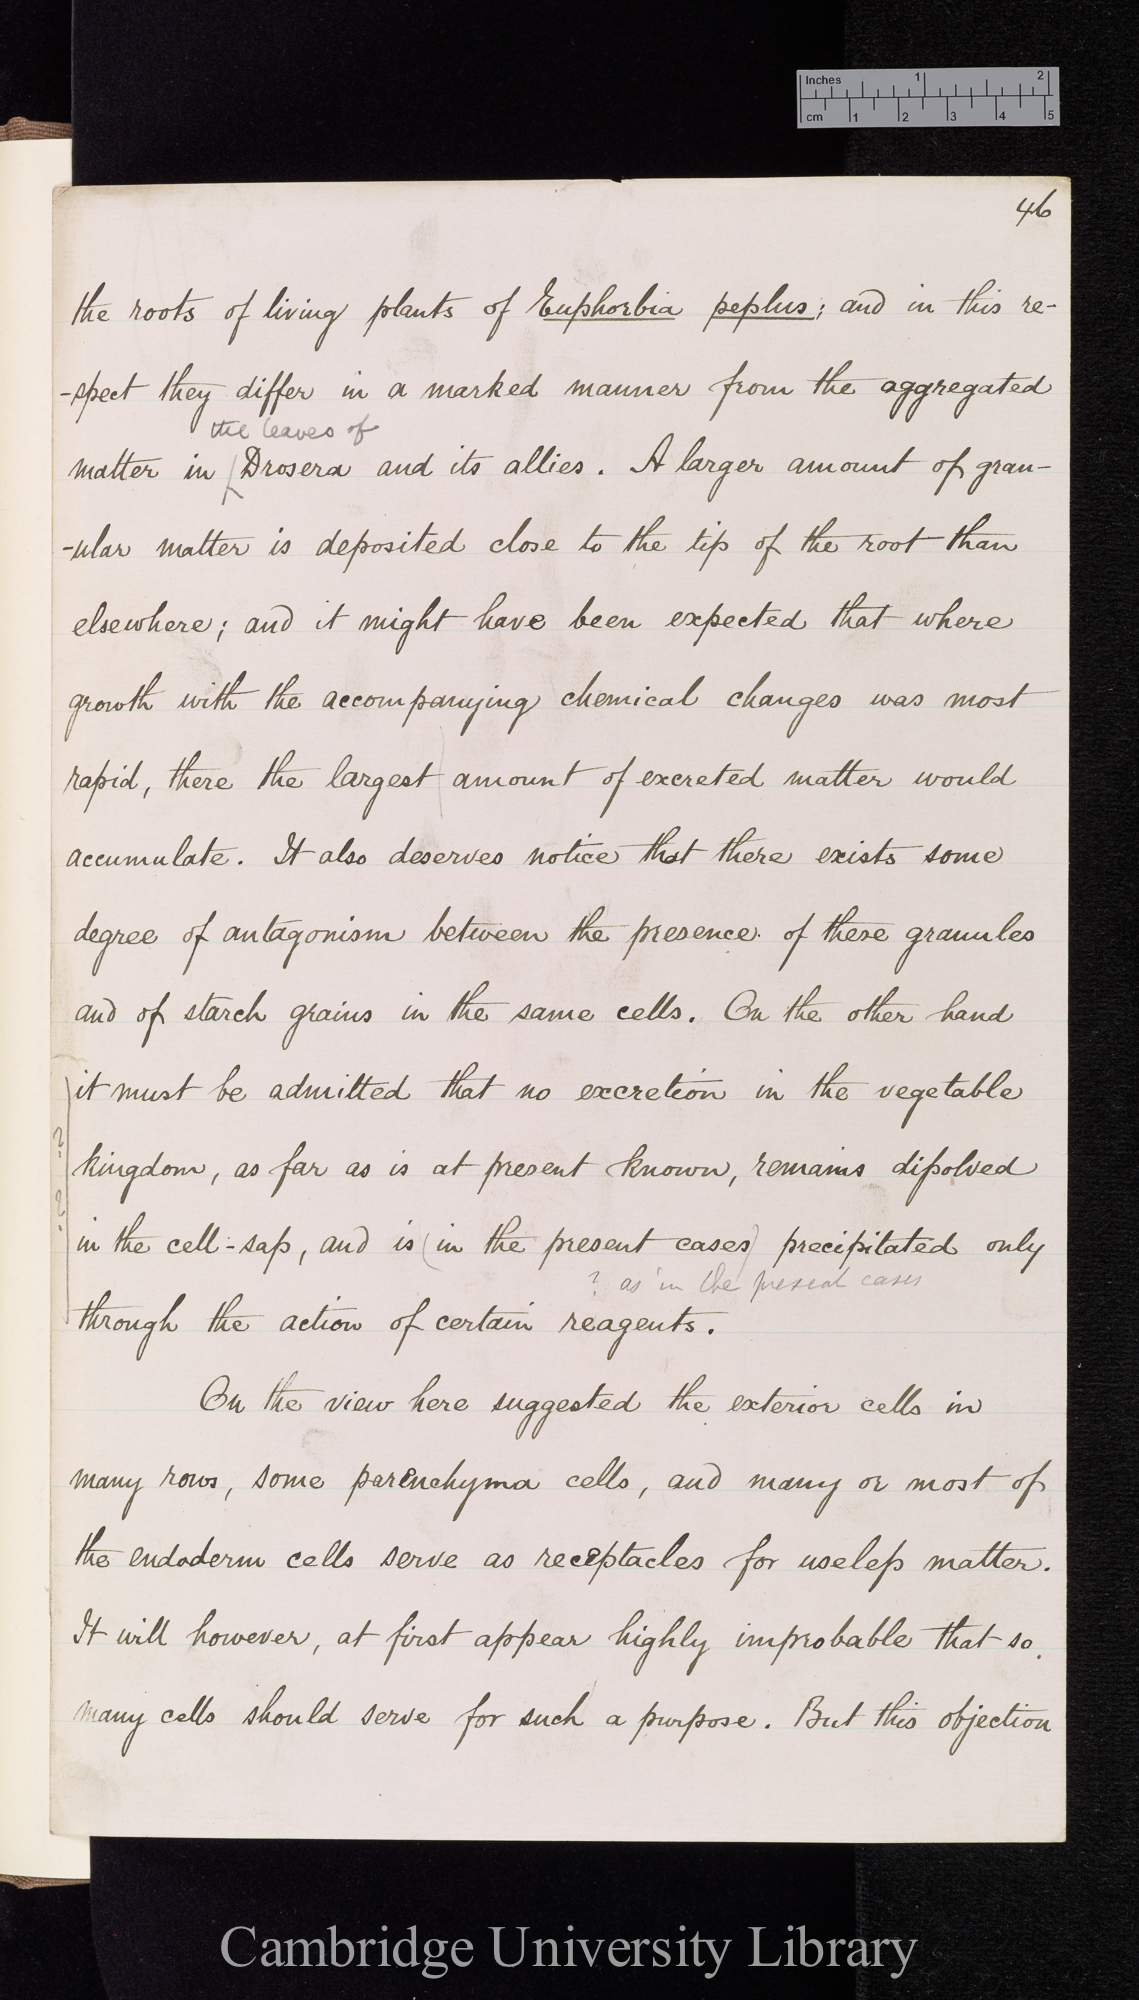 Inches 1 2
cm 1 2 3 4 5
46
the roots of living plants of Euphorbia peplus; and in this re-
-spect they differ in a marked manner from the aggregated
the leaves of
matter in Drosera and its allies. A larger amount of gran-
-ular matter is deposited close to the tip of the root than
elsewhere; and it might have been expected that where
growth with the accompanying chemical changes was most
rapid, there the largest amount of excreted matter would
accumulate. It also deserves notice that there exists some
degree of antagonism between the presence of these granules
and of starch grains in the same cells. On the other hand
it must be admitted that no excretion in the vegetable
? kingdom, as far as is at present known, remains dissolved
? in the cell-sap, and is (in the present cases) precipitated only
? as in the present cases
through the action of certain reagents.
On the view here suggested the exterior cells in
many rows, some parenchyma cells, and many or most of
the endoderm cells serve as receptacles for useless matter.
It will however, at first appear highly improbable that so
many cells should serve for such a purpose. But this objection
Cambridge University Library